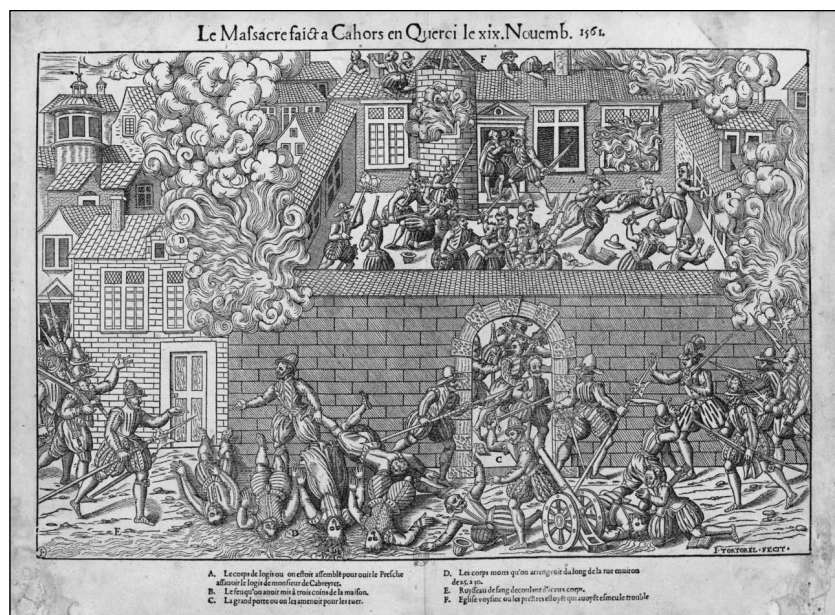 Le Massacre faict a Cahors en Querci le xix. Nouemb. 1561.
F
A
B
C
D
E
I·TORTOREL·FECIT·
A. Le corps de logis ou on estoit assemblé pour ouir le Presche
assauoir le logis de monsieur de Cabreyret.
B. Le feu qu'on auoit mis à trois coins de la maison.
C. La grand porte ou on les amenoit pour les tuer.
D. Les corps morts qu'on arrengeoit du long de la rue enuiron
de 25. a 30.
E. Ruysseau de sang decoulant d'iceux corps.
F. Eglise voysine ou les prestres estoyēt qui auoyēt esmeu le trouble